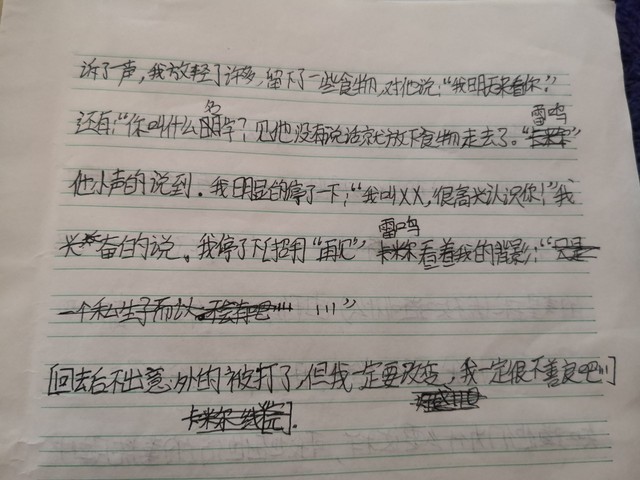 诉了一声，我放轻了许多，留下了一些食物，对他说：“我明天来看你！”
还有：“你叫什么名字？见他没有说话就放下食物走去了。“雷鸣”
他小声的说到．我明显的停了一下：“我叫XX，很高兴认识你！”我
兴奋的说。我停了下招手“再见”雷鸣看着我的背影：“只是
一个私生子而以 ”
[回去后不出意外的被打了，但我一定要改变，我一定很不善良吧]
卡米尔线完].